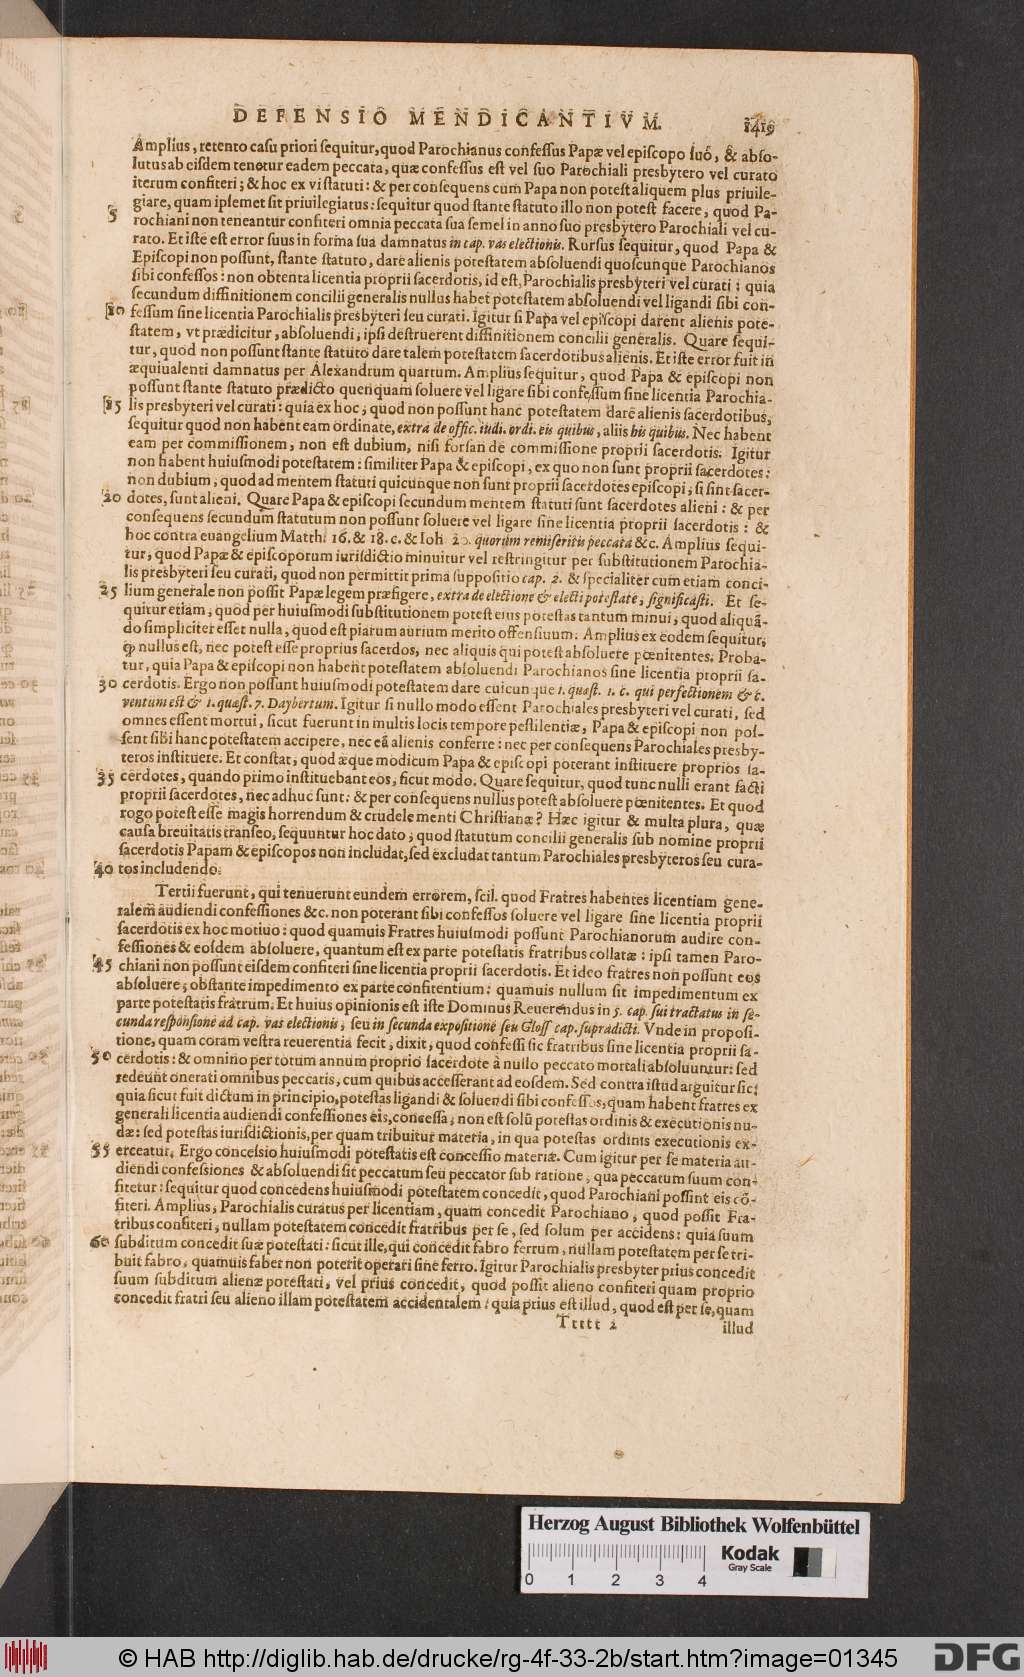 DEFENSIO MENDICANTIVM. 1419
Amplius, retento casu priori sequitur, quod Parochianus confessus Papæ vel episcopo suo, & abso-
lutus ab eisdem tenetur eadem peccata, quæ confessus est vel suo Parochiali presbytero vel curato
iterum confiteri; & hoc ex vi statuti: & per consequens cum Papa non potest aliquem plus priuile-
giare, quam ipsemet sit priuilegiatus: sequitur quod stante statuto illo non potest facere, quod Pa-
5 rochiani non teneantur confiteri omnia peccata sua semel in anno suo presbytero Parochiali vel cu-
rato. Et iste est error suus in forma sua damnatus in cap. vas electionis. Rursus sequitur, quod Papa &
Episcopi non possunt, stante statuto, dare alienis potestatem absoluendi quoscunque Parochianos
sibi confessos: non obtenta licentia proprii sacerdotis, id est, Parochialis presbyteri vel curati: quia
secundum diffinitionem concilii generalis nullus habet potestatem absoluendi vel ligandi sibi con-
10 fessum sine licentia Parochialis presbyteri seu curati. Igitur si Papa vel episcopi darent alienis pote-
statem, vt prædicitur, absoluendi, ipsi destruerent diffinitionem concilii generalis. Quare sequi-
tur, quod non possunt stante statuto dare talem potestatem sacerdotibus alienis. Et iste error fuit in
æquiualenti damnatus per Alexandrum quartum. Amplius sequitur, quod Papa & episcopi non
possunt stante statuto prædicto quenquam soluere vel ligare sibi confessum sine licentia Parochia-
15 lis presbyteri vel curati: quia ex hoc, quod non possunt hanc potestatem dare alienis sacerdotibus,
sequitur quod non habent eam ordinate, extra de offic. iudi. ordi. eis quibus, aliis his quibus. Nec habent
eam per commissionem, non est dubium, nisi forsan de commissione proprii sacerdotis. Igitur
non habent huiusmodi potestatem: similiter Papa & episcopi, ex quo non sunt proprii sacerdotes:
non dubium, quod ad mentem statuti quicunque non sunt proprii sacerdotes episcopi, si sint sacer-
20 dotes, sunt alieni. Quare Papa & episcopi secundum mentem statuti sunt sacerdotes alieni: & per
consequens secundum statutum non possunt soluere vel ligare sine licentia proprii sacerdotis: &
hoc contra euangelium Matth. 16. & 18. c. & Ioh 20. quorum remiseritis peccata &c. Amplius sequi-
tur, quod Papæ & episcoporum iurisdictio minuitur vel restringitur per substitutionem Parochia-
lis presbyteri seu curati, quod non permittit prima suppositio cap. 2. & specialiter cum etiam conci-
25 lium generale non possit Papæ legem præfigere, extra de electione & electi potestate, significasti. Et se-
quitur etiam, quod per huiusmodi substitutionem potest eius potestas tantum minui, quod aliquã-
do simpliciter esset nulla, quod est piarum aurium merito offensiuum. Amplius ex eodem sequitur,
ꝙ nullus est, nec potest esse proprius sacerdos, nec aliquis qui potest absoluere pœnitentes. Proba-
tur, quia Papa & episcopi non habent potestatem absoluendi Parochianos sine licentia proprii sa-
30 cerdotis. Ergo non possunt huiusmodi potestatem dare cuicunque 1. quæst. 1. c. qui perfectionem & c.
ventum est & 1. quæst. 7. Daybertum. Igitur si nullo modo essent Parochiales presbyteri vel curati, sed
omnes essent mortui, sicut fuerunt in multis locis tempore pestilentiæ, Papa & episcopi non pos-
sent sibi hanc potestatem accipere, nec eã alienis conferre: nec per consequens Parochiales presby-
teros instituere. Et constat, quod æque modicum Papa & episcopi poterant instituere proprios sa-
35 cerdotes, quando primo instituebant eos, sicut modo. Quare sequitur, quod tunc nulli erant facti
proprii sacerdotes, nec adhuc sunt: & per consequens nullus potest absoluere pœnitentes. Et quod
rogo potest esse magis horrendum & crudele menti Christianæ? Hæc igitur & multa plura, quæ
causa breuitatis transeo, sequuntur hoc dato, quod statutum concilii generalis sub nomine proprii
sacerdotis Papam & episcopos non includat, sed excludat tantum Parochiales presbyteros seu cura-
40 tos includendo.
Tertii fuerunt, qui tenuerunt eundem errorem, scil. quod Fratres habentes licentiam gene-
ralem audiendi confessiones &c. non poterant sibi confessos soluere vel ligare sine licentia proprii
sacerdotis ex hoc motiuo: quod quamuis Fratres huiusmodi possunt Parochianorum audire con-
fessiones & eosdem absoluere, quantum est ex parte potestatis fratribus collatæ: ipsi tamen Paro-
45 chiani non possunt eisdem confiteri sine licentia proprii sacerdotis. Et ideo fratres non possunt eos
absoluere, obstante impedimento ex parte confitentium: quamuis nullum sit impedimentum ex
parte potestatis fratrum. Et huius opinionis est iste Dominus Reuerendus in 5. cap. sui tractatus in se-
cunda responsione ad cap. vas electionis, seu in secunda expositione seu Gloss cap. supradicti. Vnde in proposi-
tione, quam coram vestra reuerentia fecit, dixit, quod confessi sic fratribus sine licentia proprii sa-
50 cerdotis: & omnino per totum annum proprio sacerdote à nullo peccato mortali absoluuntur: sed
redeunt onerati omnibus peccatis, cum quibus accesserant ad eosdem. Sed contra istud arguitur sic;
quia sicut fuit dictum in principio, potestas ligandi & soluendi sibi confessos, quam habent fratres ex
generali licentia audiendi confessiones eis, concessa, non est solũ potestas ordinis & executionis nu-
dæ: sed potestas iurisdictionis, per quam tribuitur materia, in qua potestas ordinis executionis ex-
55 erceatur. Ergo concessio huiusmodi potestatis est concessio materiæ. Cum igitur per se materia au-
diendi confessiones & absoluendi sit peccatum seu peccator sub ratione, qua peccatum suum con-
fitetur: sequitur quod concedens huiusmodi potestatem concedit, quod Parochiani possint eis cõ-
fiteri. Amplius, Parochialis curatus per licentiam, quam concedit Parochiano, quod possit Fra-
tribus confiteri, nullam potestatem concedit fratribus per se, sed solum per accidens: quia suum
60 subditum concedit suæ potestati: sicut ille, qui concedit fabro ferrum, nullam potestatem per se tri-
buit fabro, quamuis faber non poterit operari sine ferro. Igitur Parochialis presbyter prius concedit
suum subditum alienæ potestati, vel prius concedit, quod possit alieno confiteri quam proprio
concedit fratri seu alieno illam potestatem accidentalem: quia prius est illud, quod est per se, quam
Tttt 2 illud
Herzog August Bibliothek Wolfenbüttel
Kodak
Gray Scale
0 1 2 3 4
© HAB http://diglib.hab.de/drucke/rg-4f-33-2b/start.htm?image=01345
DFG